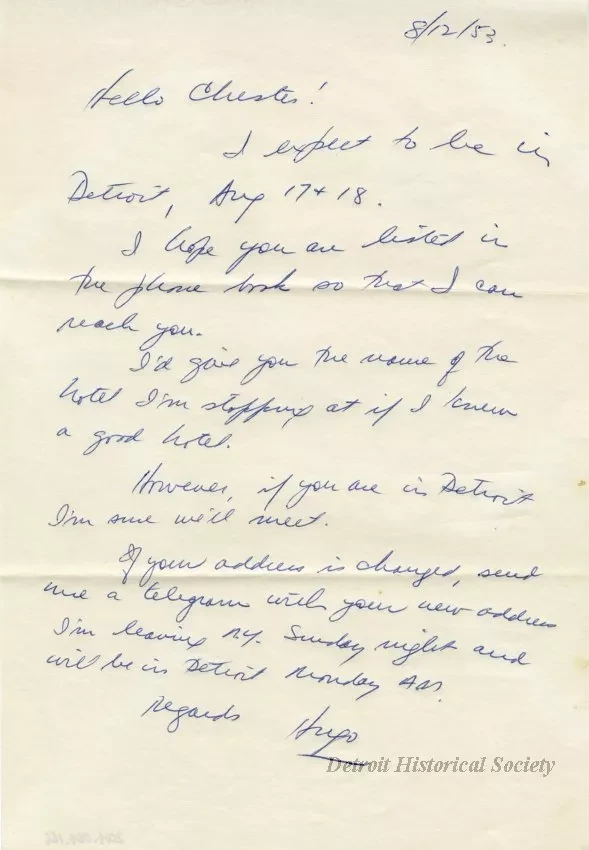 8/12/53.
Hello Chester!
I expect to be in
Detroit, Aug 17 + 18.
I hope you are listed in
the phone book so that I can
reach you.
I'd give you the name of the
hotel I'm stopping at if I knew
a good hotel.
However, if you are in Detroit
I'm sure we'll meet.
If your address is changed, send
me a telegram with your new address
I'm leaving N.Y. Sunday night and
will be in Detroit Monday AM.
Regards
Hugo
Detroit Historical Society